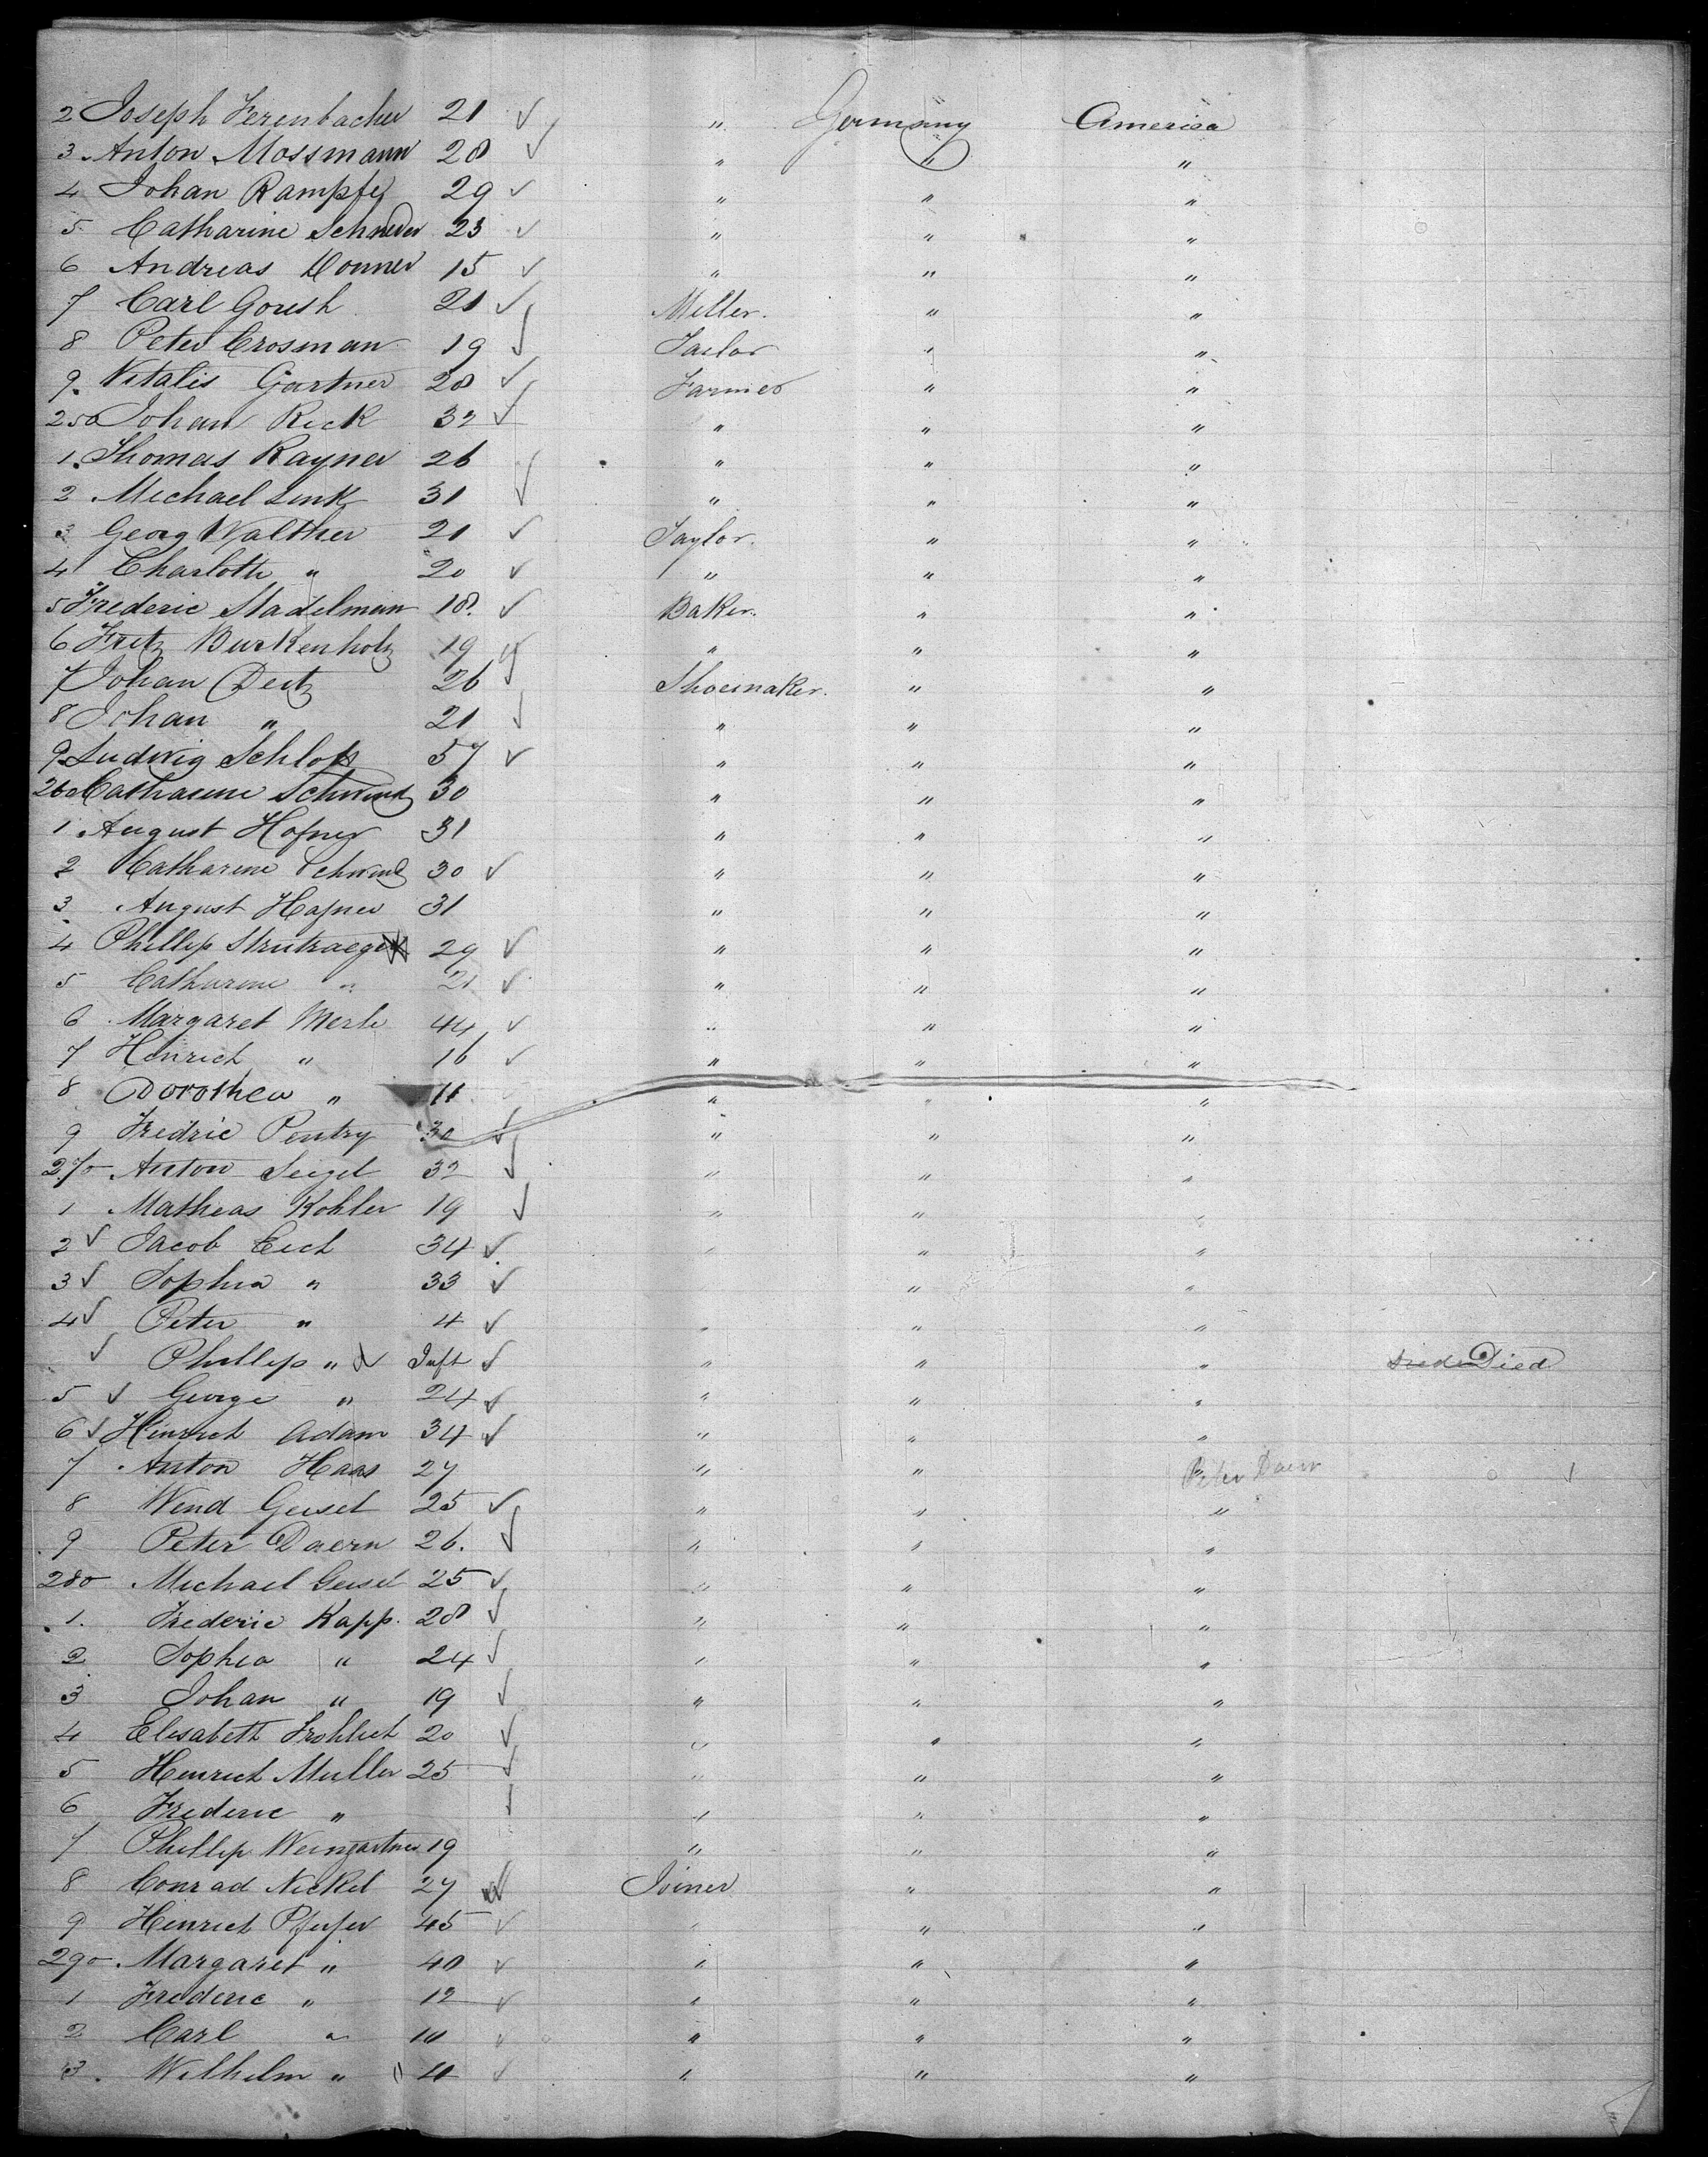 2 Joseph Ferenbacher 21 ✓ " Germany America
3. Anton Mossmann 28 ✓ " " "
4 Johan Rampfe 29 ✓ " " "
5 Catharine Schneder 23 ✓ " " "
6 Andreas Donner 15 ✓ " " "
7 Carl Goush 21 ✓ Miller. " "
8 Peter Crosman 19 ✓ Tailor " "
9. Vitalis Gartner 28 ✓ Farmer " "
250 Johan Rick 32 ✓ " " "
1. Thomas Rayner 26 " " "
2 Michael Link 31 ✓ " " "
3 Georg Walther 21 ✓ Taylor. " "
4 Charlotte " 20 ✓ " " "
5 Frederic Stadelman 18. ✓ Baker. " "
6 Fritz Burkenholz 19 ✓ " " "
7 Johan Deitz 26 ✓ Shoemaker. " "
8 Johan " 21 ✓ " " "
9. Ludwig Schloss 57 ✓ " " "
260 Catharine Schwind 30 " " "
1. August Hofner 31 " " "
2 Catharine Schwind 30 ✓ " " "
3. August Hafner 31 " " "
4 Phillip 29 ✓ " " "
5 Catharine " 21 ✓ " " "
6 Margaret Merle 44 ✓ " " "
7 Henrich " 16 ✓ " " "
8 Dorothea " 11 " " "
9 Fredric Pentry 30 ✓ " " "
270 Anton Seigel 32 ✓ " " "
1 Matheas Kohler 19 ✓ " " "
2 ✓ Jacob Eich 34 ✓ " " "
3 ✓ Sophia " 33 ✓ " "
4 ✓ Peter " 4 ✓ " " "
✓ Phillip " Inft ✓ " " " Died
5 ✓ George " 24 ✓ " " "
6 ✓ Hinrich Adam 34 ✓ " " "
7 Anton Haas 27 " " " Peter Daern
8 Wend Geisel 25 ✓ " " "
9 Peter Daern 26. ✓ " " "
280 Michael Geisel 25 ✓ " " "
1. Frederic Kapp. 28 ✓ " " "
2 Sophia " 24 ✓ " " "
3 Johan " 19 ✓ " " "
4 Elisabeth Frohlich 20 ✓ " " "
5 Henrich Muller 25 ✓ " " "
6 Frederic " ✓ " " "
7 Phillip Weingartner 19 " " "
8 Conrad Nickel 27 ✓ Joiner " "
9 Hinrich Pfeifer 45 ✓ " " "
290 Margaret " 40 ✓ " " "
1 Frederic " 12 ✓ " " "
2 Carl " 10 ✓ " " "
3. Wilhelm " ✓ " " "